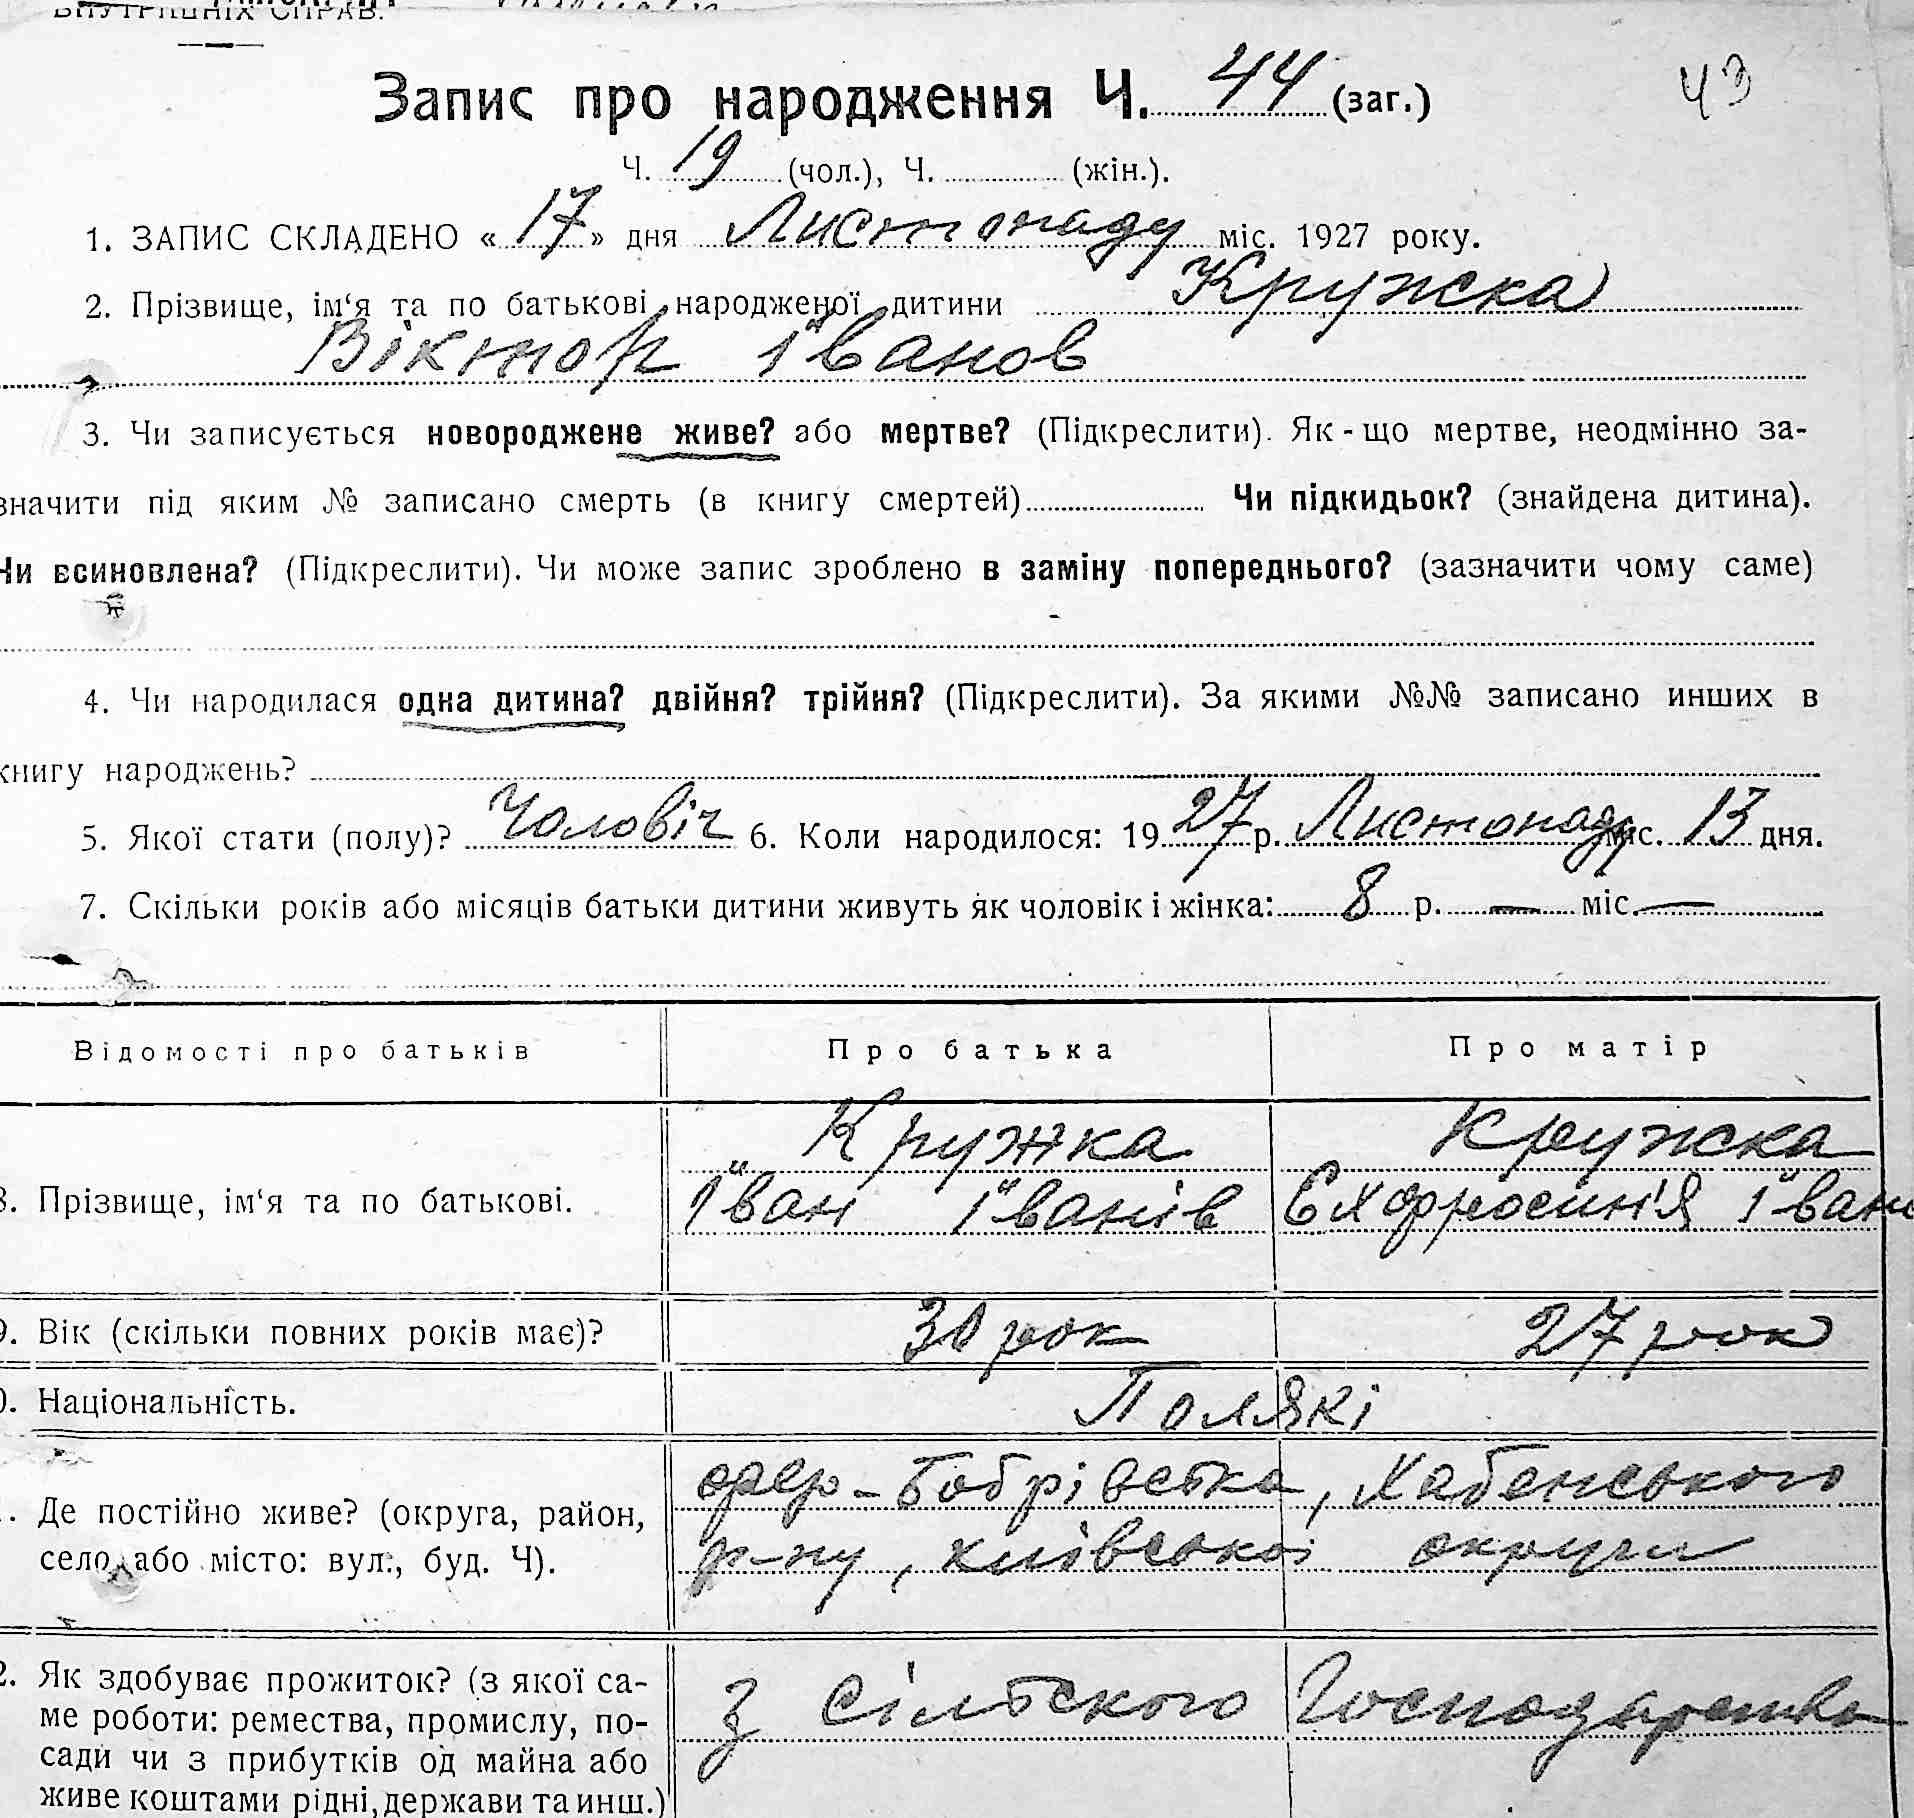 ВНУТРІШНІХ СПРАВ.
Запис про народження Ч. 44 (заг.) 43
Ч. 19 (чол.), Ч. (жін.).
1. ЗАПИС СКЛАДЕНО « 17 » дня Листопаду міс. 1927 року.
2. Прізвище, ім‘я та по батькові народженої дитини Кружка
Віктор Іванов
3. Чи записується новороджене живе? або мертве? (Підкреслити). Як - що мертве, неодмінно за-
значити під яким № записано смерть (в книгу смертей) Чи підкидьок? (знайдена дитина).
Чи всиновлена? (Підкреслити). Чи може запис зроблено в заміну попереднього? (зазначити чому саме)
4. Чи народилася одна дитина? двійня? трійня? (Підкреслити). За якими №№ записано инших в
книгу народжень?
5. Якої стати (полу)? Чоловіч 6. Коли народилося: 1927 р. Листопаду міс. 13 дня.
7. Скільки років або місяців батьки дитини живуть як чоловік і жінка: 8 р. — міс. —
Відомості про батьків Про батька Про матір
Кружка Кружка
8. Прізвище, ім‘я та по батькові. Іван Іванів Єхфросинія Іван
9. Вік (скільки повних років має)? 30 рок 27 рок
0. Національність. Полякі
Бобрівська, Хабенського
. Де постійно живе? (округа, район,
село або місто: вул., буд. Ч). р-ну, київської округи
2. Як здобуває прожиток? (з якої са- з сільського Господарства
ме роботи: ремества, промислу, по-
сади чи з прибутків од майна або
живе коштами рідні, держави та инш.)